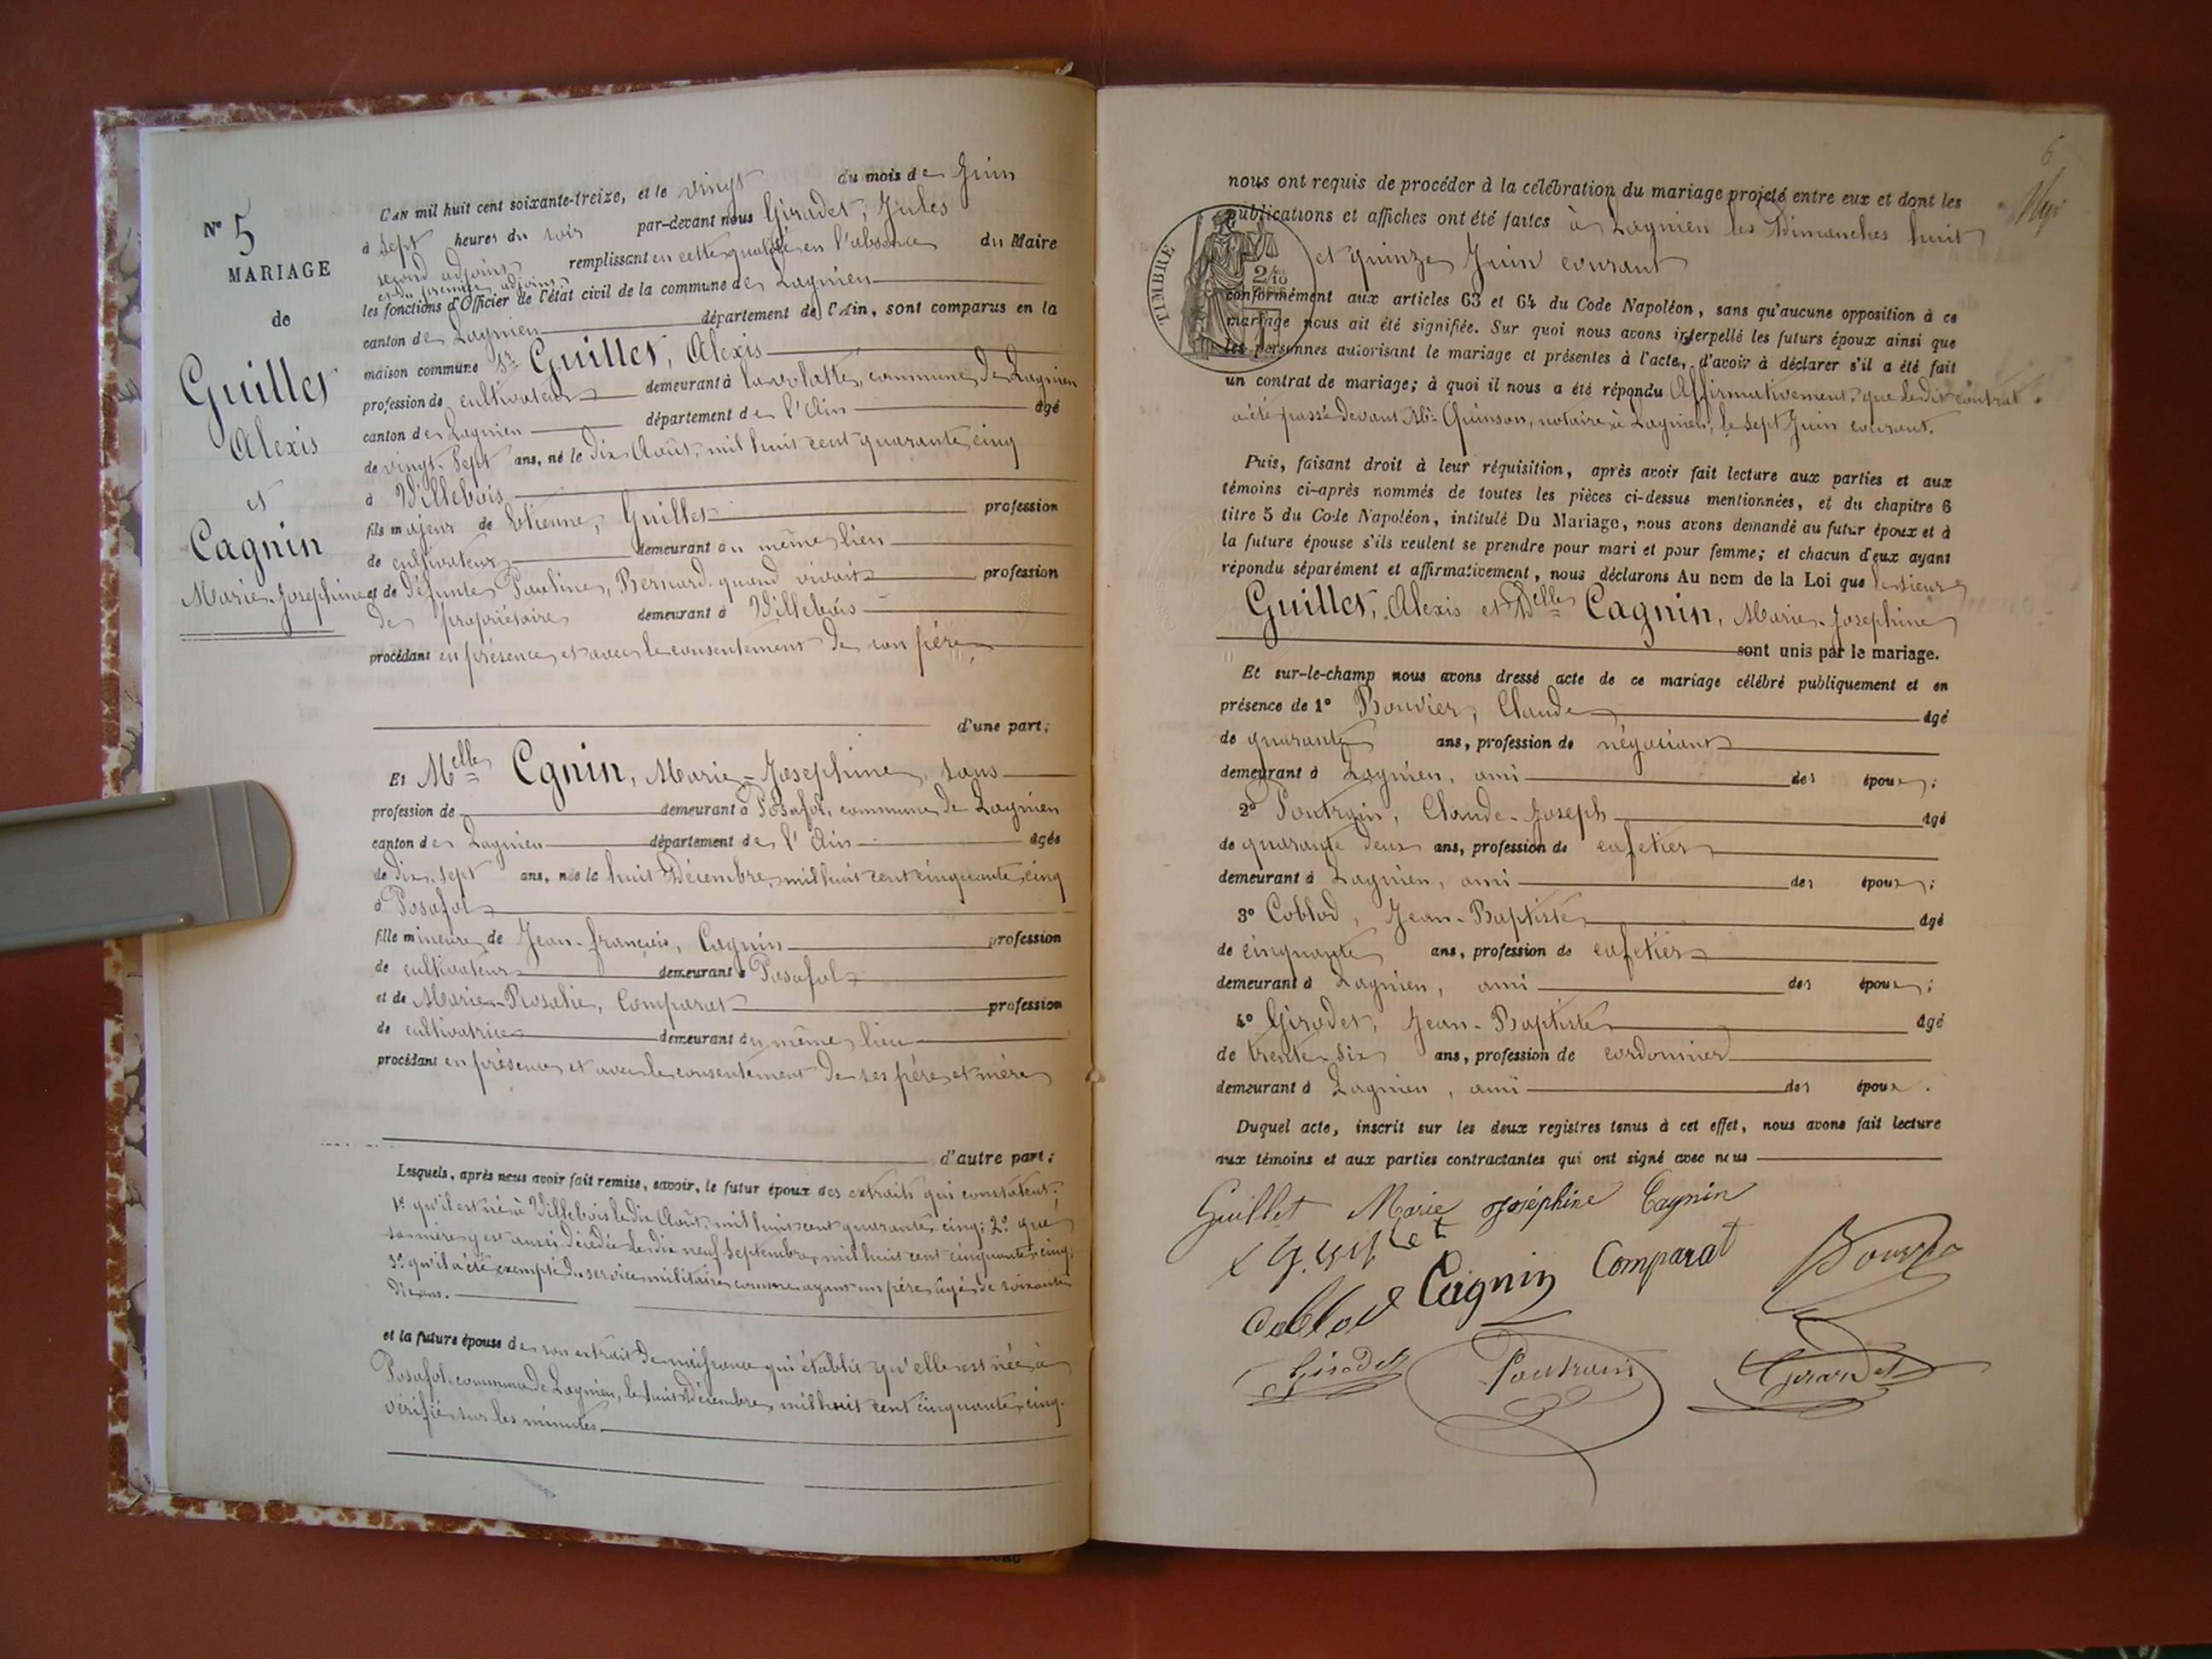 N° 5
MARIAGE
de
Guillet
Alexis
et
Cagnin
Marie-Josephine
L'AN mil huit cent soixante-treize, et le vingt du mois de Juin
à sept heures du soir par-devant nous Giradet, Jules
second adjoint remplissant en cette qualité en l'absence du Maire
et du premier adjoint
les fonctions d'Officier de l'état civil de la commune de Lagnieu
canton de Lagnieu département de l'Ain, sont comparus en la
maison commune Sr Guillet, Alexis
profession de cultivateur demeurant à commune de Lagnieu
canton de Lagnieu département de l'Ain âgé
de vingt-sept ans, né le dix Août, mil huit cent quarante cinq
à Villebois
fils majeur de Etienne, Guillet profession
de cultivateur demeurant au même lieu
et de défunte Pauline, Bernard quand vivait profession
de propriétaire demeurant à Villebois
procédant en présence et avec le consentement de son père,
d'une part;
Et Melle Cgnin, Marie-Josephine, sans
profession de demeurant à Posafol, commune de Lagnieu
canton de Lagnieu département de l'Ain âgée
de dix-sept ans, née le huit Décembre, mil huit cent cinquante cinq
à Posafol
fille mineure de Jean-françois, Cagnin profession
de cultivateur demeurant à Posafol
et de Marie-Rosalie, Comparat profession
de cultivatrice demeurant au même lieu
procédant en présence et avec le consentement de ses père et mère
d'autre part;
Lesquels, après nous avoir fait remise, savoir, le futur époux des extraits qui constatent;
1° qu'il est né à Villebois le dix Août, mil huit cent quarante cinq; 2° que
sa mère y est aussi décédée le dix neuf Septembre, mil huit cent cinquante cinq;
3° qu'il a été exempté du service militaire comme ayant un père âgé de soixante
dix ans.
et la future épouse de son extrait de naissance qui établit qu'elle est née à
Posafol commune de Lagnieu, le huit Décembre, mil huit cent cinquante cinq.
vérifié sur les minutes.
6
nous ont requis de procéder à la célébration du mariage projeté entre eux et dont les
publications et affiches ont été faites à Lagnieu les Dimanches huit
et quinze Juin courant
TIMBRE
2/10
conformément aux articles 63 et 64 du Code Napoléon, sans qu'aucune opposition à ce
mariage nous ait été signifiée. Sur quoi nous avons interpellé les futurs époux ainsi que
les personnes autorisant le mariage et présentes à l'acte, d'avoir à déclarer s'il a été fait
un contrat de mariage; à quoi il nous a été répondu Affirmativement, que le dit contrat
a été passé devant Me Quinson, notaire à Lagnieu, le sept Juin courant.
Puis, faisant droit à leur réquisition, après avoir fait lecture aux parties et aux
témoins ci-après nommés de toutes les pièces ci-dessus mentionnées, et du chapitre 6
titre 5 du Code Napoléon, intitulé Du Mariage, nous avons demandé au futur époux et à
la future épouse s'ils veulent se prendre pour mari et pour femme; et chacun d'eux ayant
répondu séparément et affirmativement, nous déclarons Au nom de la Loi que le sieur
Guillet, Alexis et Delle Cagnin, Marie-Josephine
sont unis par le mariage.
Et sur-le-champ nous avons dressé acte de ce mariage célébré publiquement et en
présence de 1° Bouvier, Claude âgé
de quarante ans, profession de négociant
demeurant à Lagnieu, ami des époux;
2° Poutrain, Claude-Joseph âgé
de quarante deux ans, profession de cafetier
demeurant à Lagnieu, ami des époux;
3° Coblod, Jean-Baptiste âgé
de cinquante ans, profession de cafetier
demeurant à Lagnieu, ami des époux;
4° Girodet, Jean-Baptiste âgé
de trente-six ans, profession de cordonnier
demeurant à Lagnieu, ami des époux.
Duquel acte, inscrit sur les deux registres tenus à cet effet, nous avons fait lecture
aux témoins et aux parties contractantes qui ont signé avec nous
Guillet Marie Joséphine Cagnin
Cagnin Comparat
Coblod
Girodet Poutrain